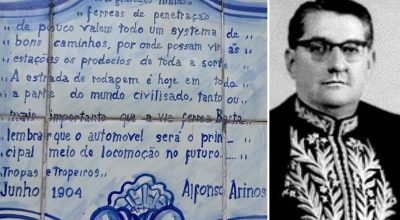 ferreas de penetração
de pouco valem todo um systema de
bons caminhos, por onde possam vir ás
estações os productos de toda a sorte
A estrada de rodagem é hoje em toda
a parte do mundo civilisado, tanto ou
mais importante que a via ferrea Basta
lembrar que o automovel será o prin
cipal meio de locomoção no futuro.
Tropas e Tropeiros
Junho 1904 Alfonso Arinos